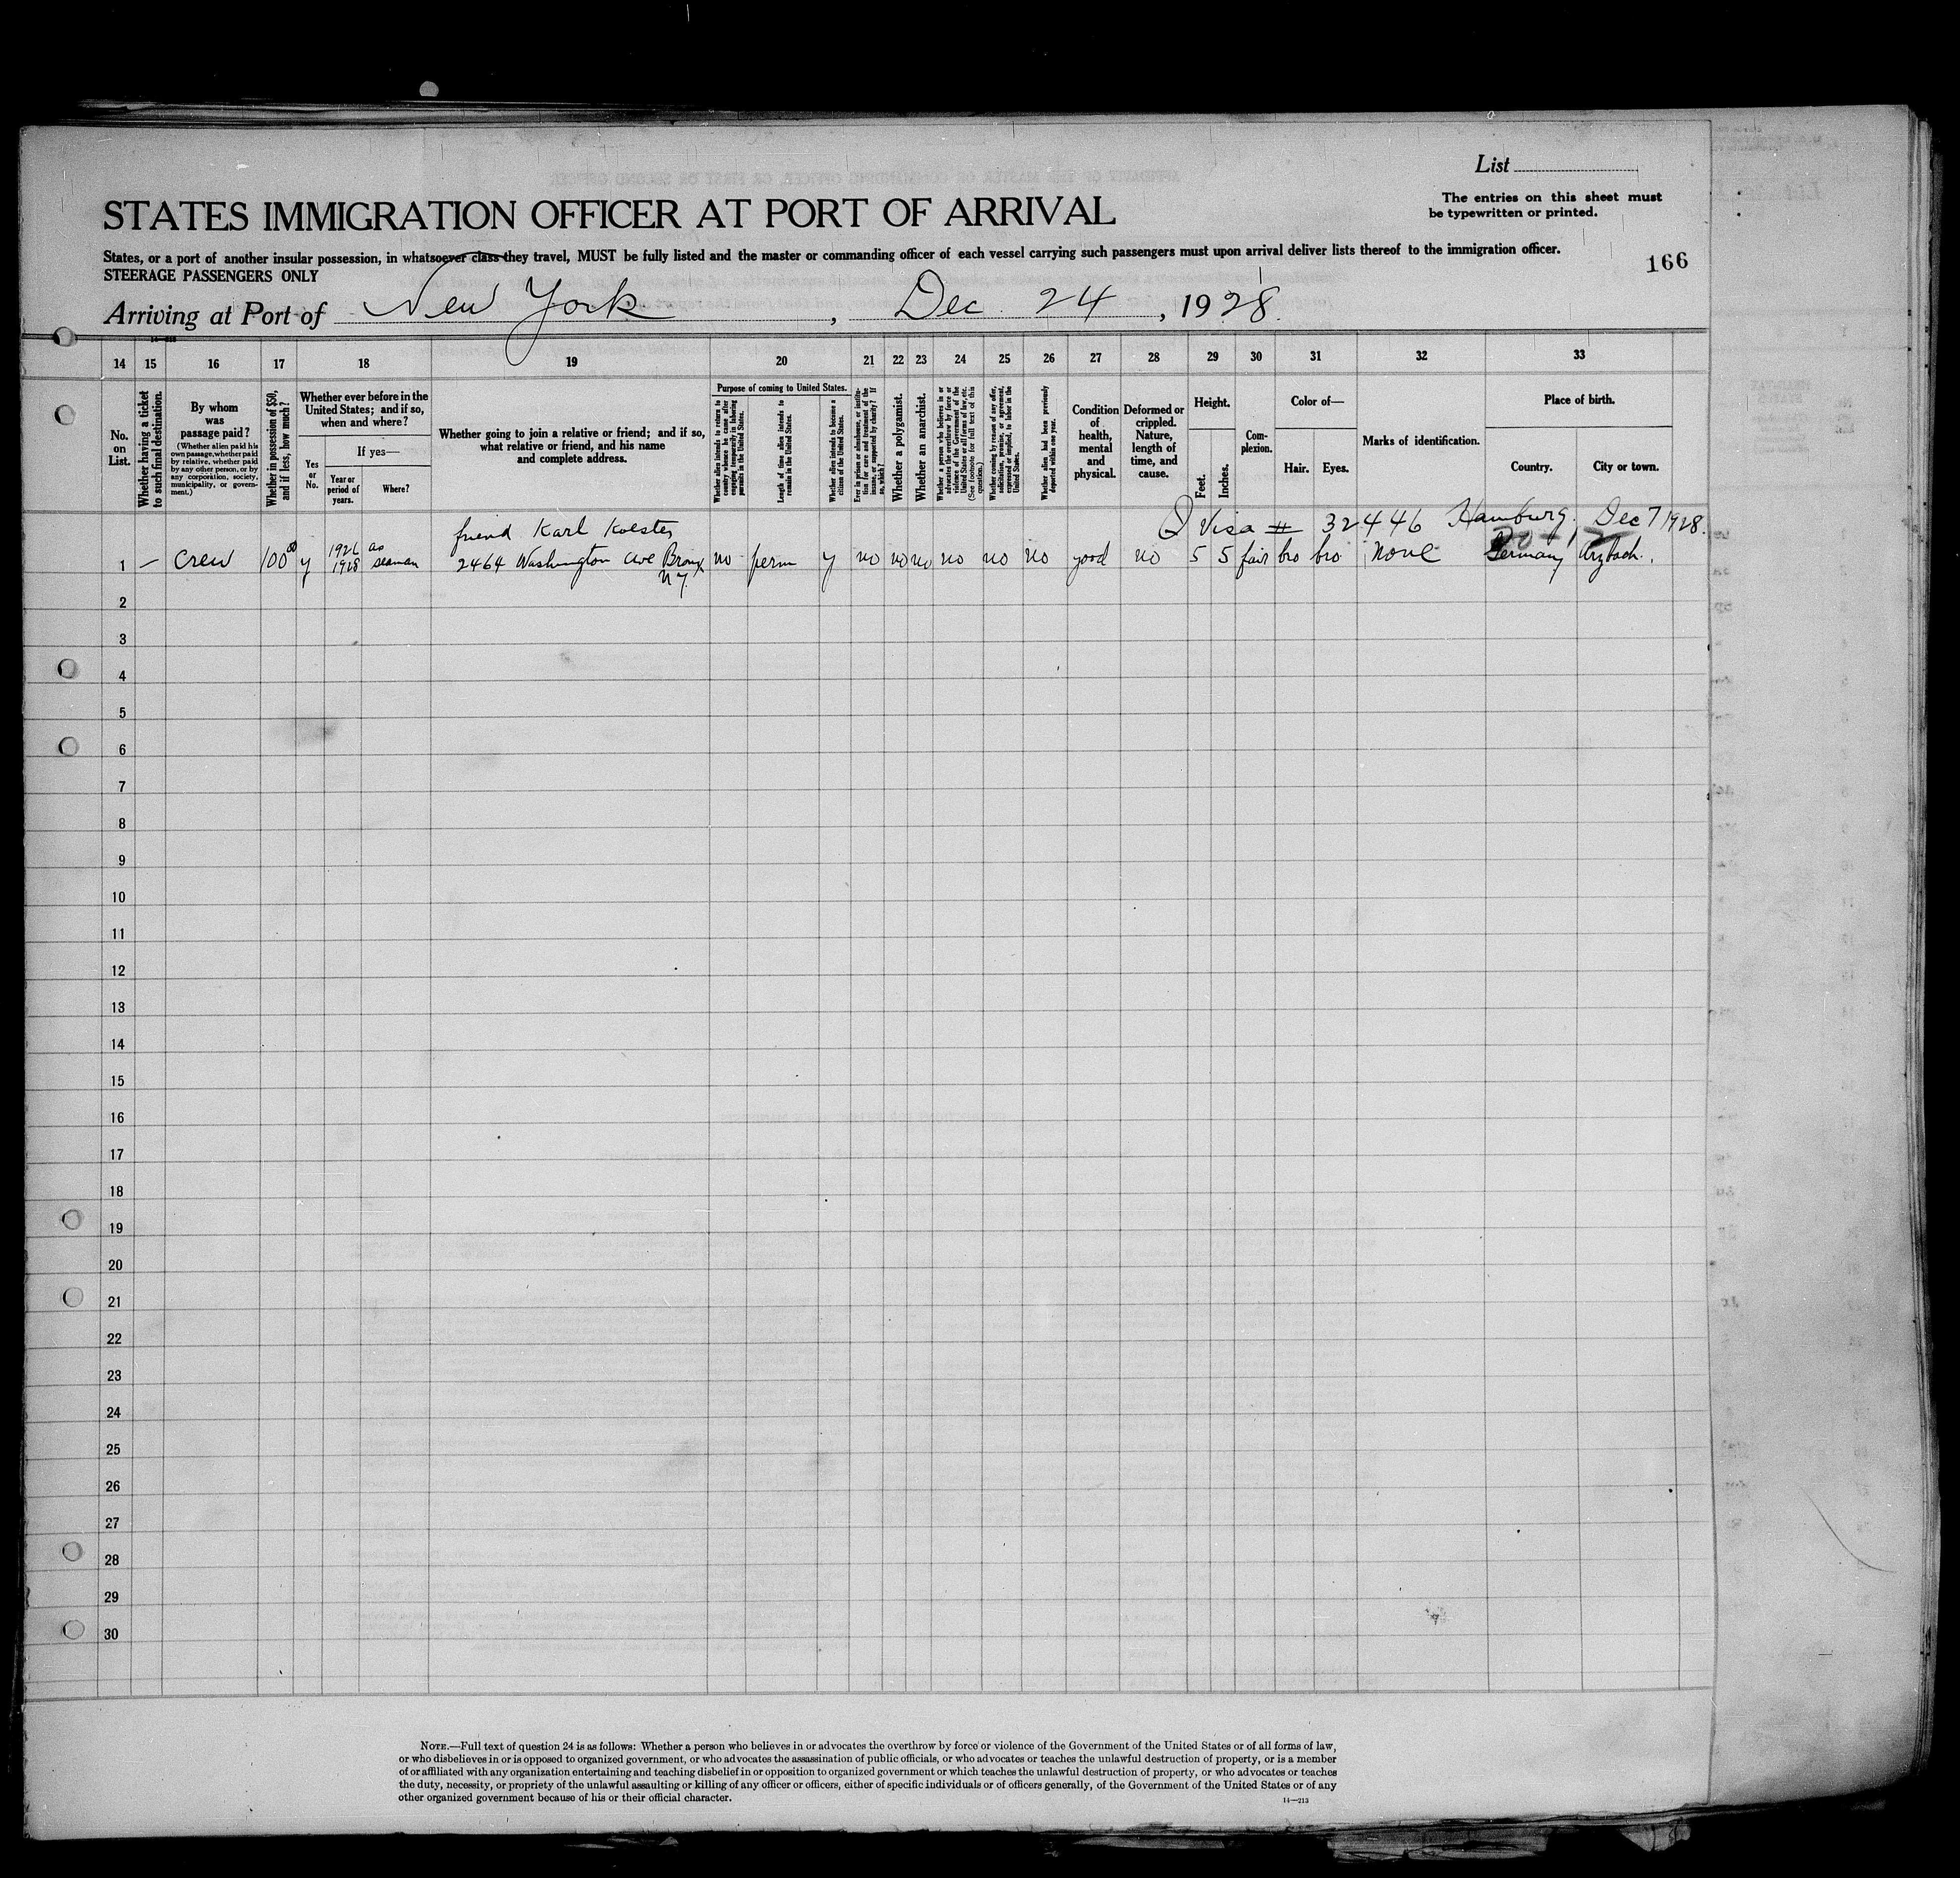 List
The entries on this sheet must
be typewritten or printed.
STATES IMMIGRATION OFFICER AT PORT OF ARRIVAL
States, or a port of another insular possession, in whatsoever class they travel, MUST be fully listed and the master or commanding officer of each vessel carrying such passengers must upon arrival deliver lists thereof to the immigration officer.
STEERAGE PASSENGERS ONLY
166
Arriving at Port of New York, Dec. 24, 1928.
14 15 16 17 18 19 20 21 22 23 24 25 26 27 28 29 30 31 32 33
No.
on
List.
Whether having a ticket
to such final destination.
By whom
was
passage paid?
(Whether alien paid his
own passage, whether paid
by relative, whether paid
by any other person, or by
any corporation, society,
municipality, or govern-
ment.)
Whether in possession of $50,
and if less, how much?
Whether ever before in the
United States; and if so,
when and where?
Yes
or
No.
If yes—
Year or
period of
years.
Where?
Whether going to join a relative or friend; and if so,
what relative or friend, and his name
and complete address.
Purpose of coming to United States.
Whether alien intends to return to
country whence he came after
engaging temporarily in laboring
pursuits in the United States.
Length of time alien intends to
remain in the United States.
Whether alien intends to become a
citizen of the United States.
Ever in prison or almshouse, or institu-
tion for care and treatment of the
insane, or supported by charity? If
so, which?
Whether a polygamist.
Whether an anarchist.
Whether a person who believes in or
advocates the overthrow by force or
violence of the Government of the
United States or all forms of law, etc.
(See footnote for full text of this
question.)
Whether coming by reason of any offer,
solicitation, promise, or agreement,
expressed or implied, to labor in the
United States.
Whether alien had been previously
deported within one year.
Condition
of
health,
mental
and
physical.
Deformed or
crippled.
Nature,
length of
time, and
cause.
Height.
Feet.
Inches.
Com-
plexion.
Color of—
Hair. Eyes.
Marks of identification.
Place of birth.
Country. City or town.
friend Karl Koester Q Visa # 32446 Hamburg. Dec 7 1928.
1 — Crew 100 00 y 1926 1928 as seaman 2464 Washington Ave Bronx N.Y. no perm y no no no no no no good no 5 5 fair bro bro None Germany
2
3
4
5
6
7
8
9
10
11
12
13
14
15
16
17
18
19
20
21
22
23
24
25
26
27
28
29
30
NOTE.—Full text of question 24 is as follows: Whether a person who believes in or advocates the overthrow by force or violence of the Government of the United States or of all forms of law,
or who disbelieves in or is opposed to organized government, or who advocates the assassination of public officials, or who advocates or teaches the unlawful destruction of property, or is a member
of or affiliated with any organization entertaining and teaching disbelief in or opposition to organized government or which teaches the unlawful destruction of property, or who advocates or teaches
the duty, necessity, or propriety of the unlawful assaulting or killing of any officer or officers, either of specific individuals or of officers generally, of the Government of the United States or of any
other organized government because of his or their official character.
14—213